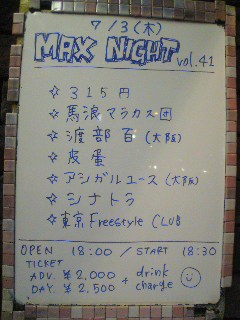 7/3(木)
MAX NIGHT vol.41
☆ 315円
☆ 馬浪マラカス団
☆ 渡部百 (大阪)
☆ 皮蛋
☆ アシガルユース (大阪)
☆ シナトラ
☆ 東京Freestyle CLUB
OPEN 18:00 / START 18:30
TICKET
ADV. ¥2,000 + drink
DAY. ¥2,500 charge